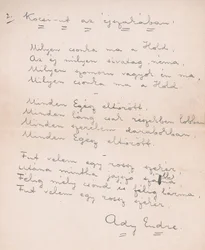 2. Kocsi-út az éjszakában.
Milyen csonka ma a Hold,
Az éj milyen sivatag, néma,
Milyen szomorú vagyok én ma,
Milyen csonka ma a Hold.
Minden Egész eltörött,
Minden láng csak részekben lobban,
Minden szerelem darabokban,
Minden Egész eltörött.
Fut velem egy rossz szekér,
Utána mintha jajszó
Félig mély csönd és félig lárma,
Fut velem egy rossz szekér.
Ady Endre